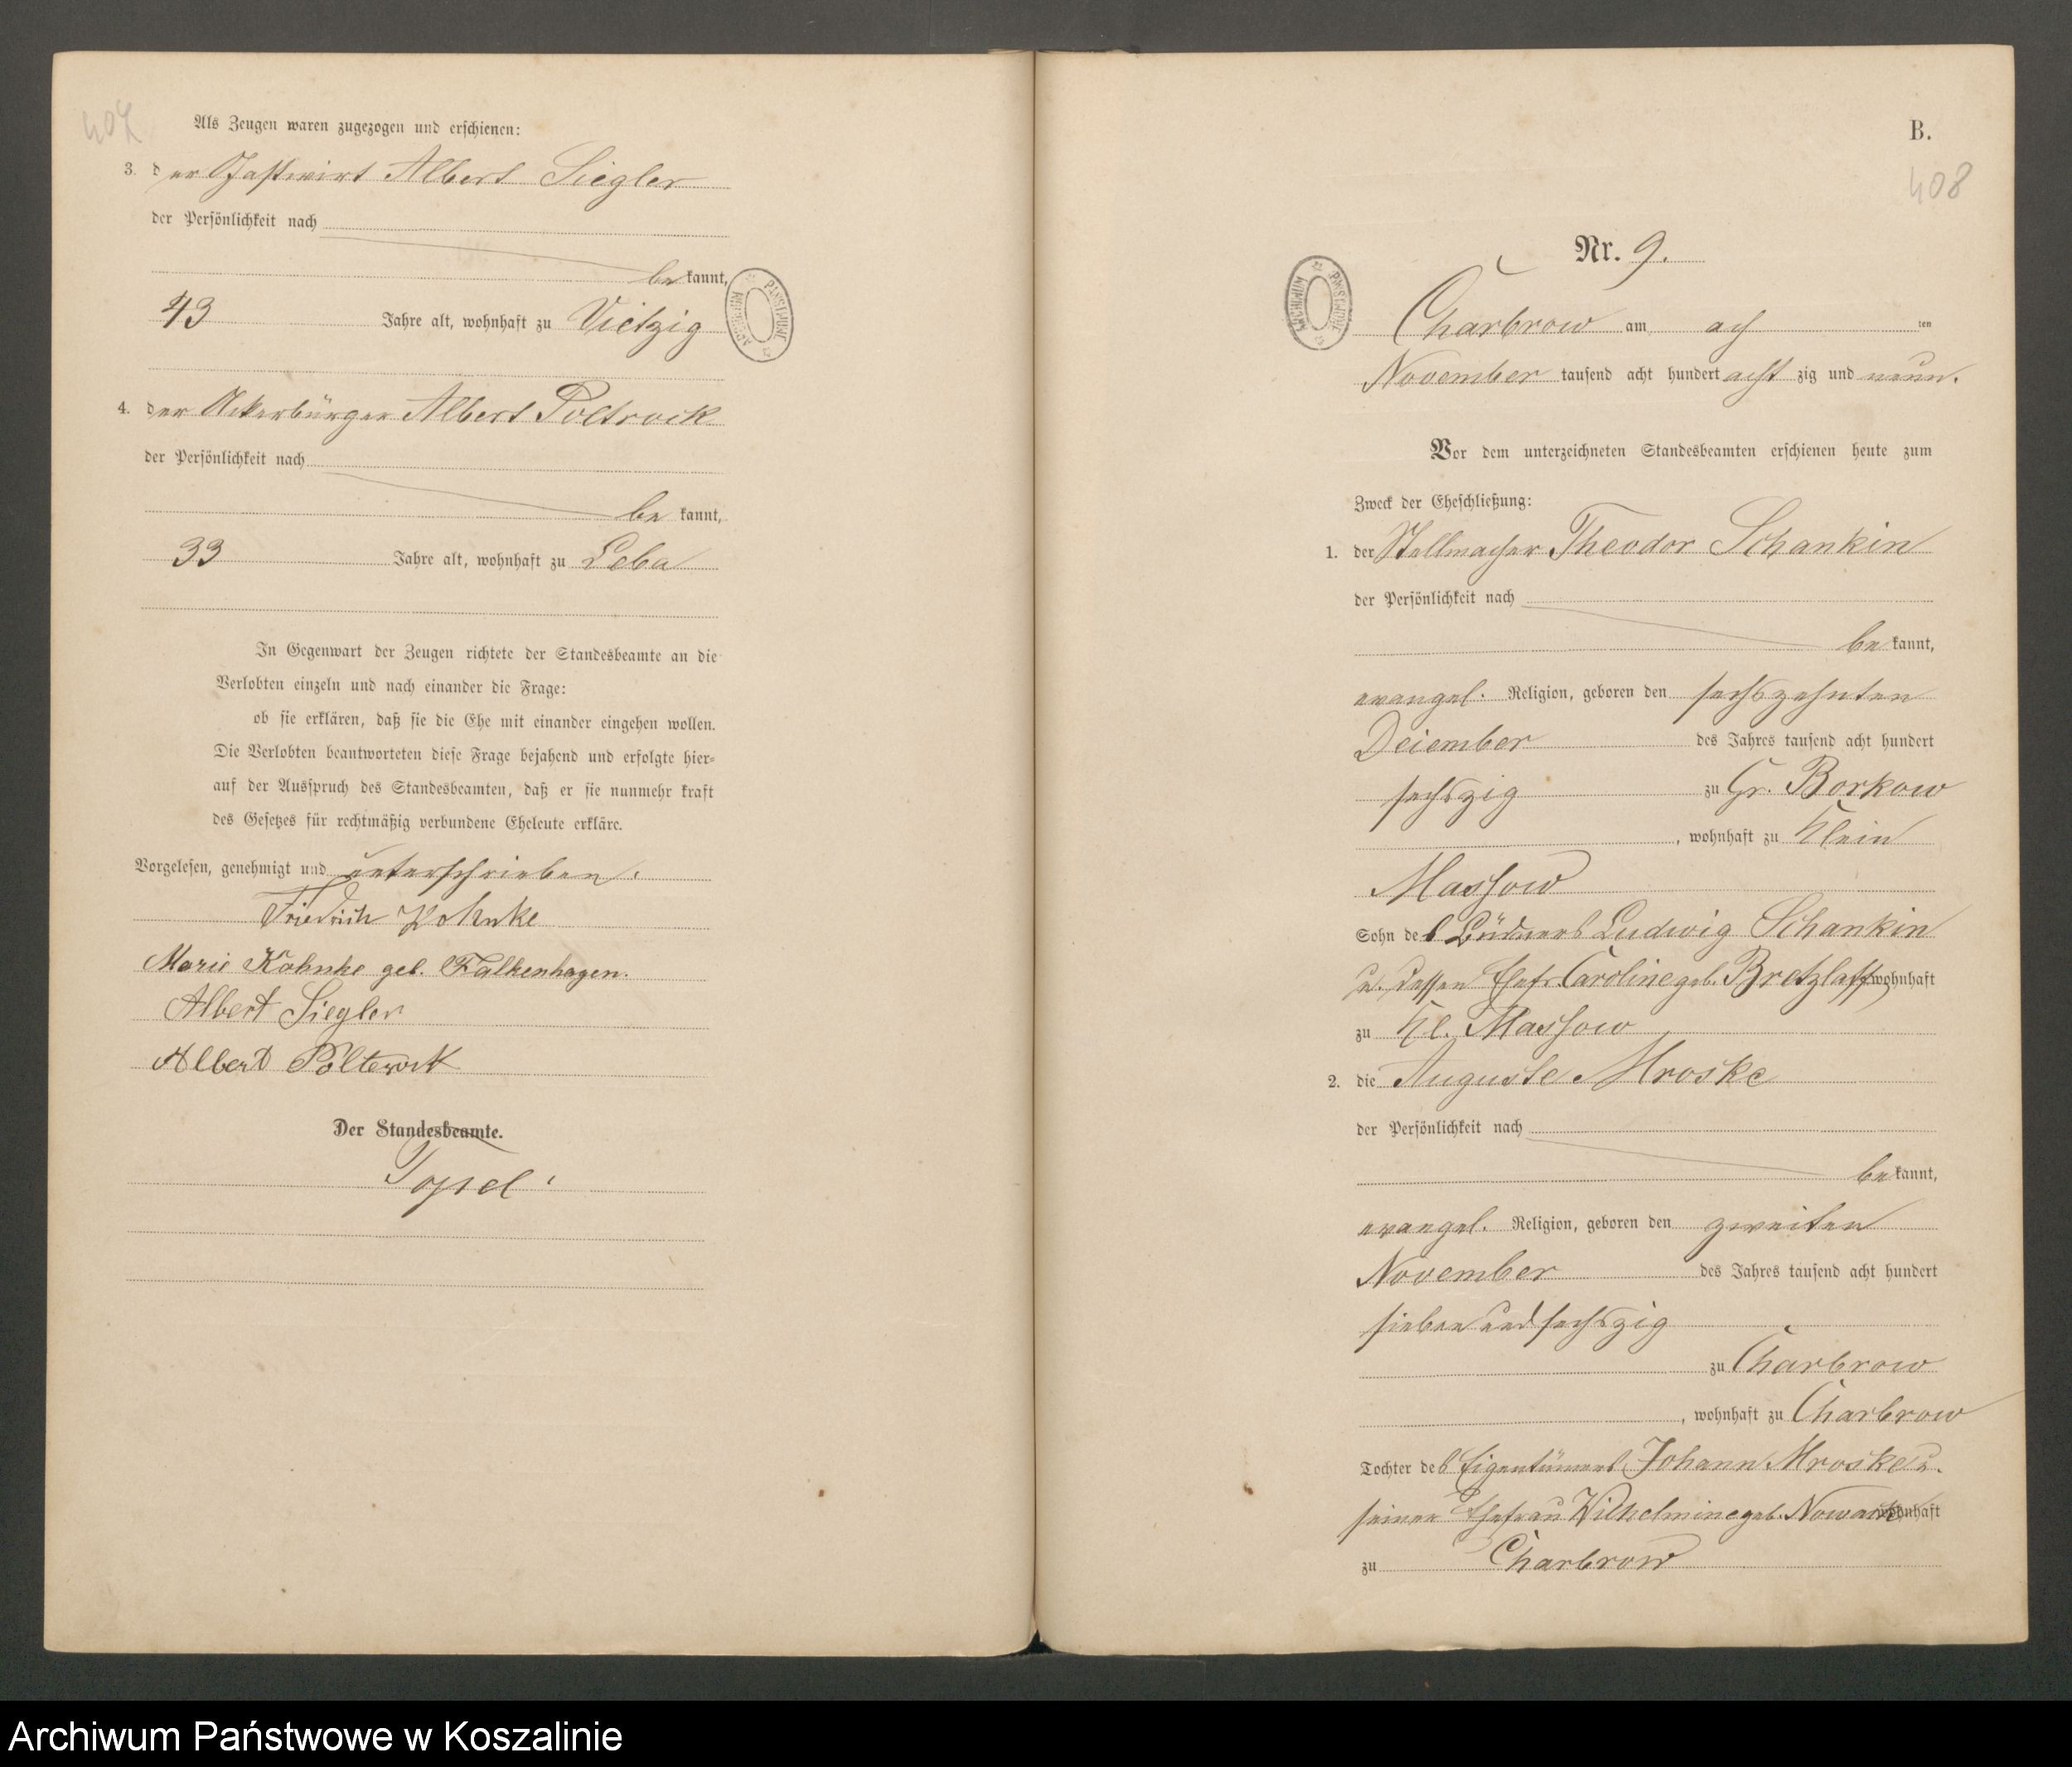 407
Als Zeugen waren zugezogen und erschienen:
3. der Gastwirt Albert Siegler
der Persönlichkeit nach
bekannt,
43 Jahre alt, wohnhaft zu Vietzig
4. der Ackerbürger Albert Poltrock
der Persönlichkeit nach
be kannt,
33 Jahre alt, wohnhaft zu Leba
In Gegenwart der Zeugen richtete der Standesbeamte an die
Verlobten einzeln und nach einander die Frage:
ob sie erklären, daß sie die Ehe mit einander eingehen wollen.
Die Verlobten beantworteten diese Frage bejahend und erfolgte hier-
auf der Ausspruch des Standesbeamten, daß er sie nunmehr kraft
des Gesetzes für rechtmäßig verbundene Eheleute erkläre.
Vorgelesen, genehmigt und unterschrieben.
Friedrich Kohnke
Marie Kohnke geb. Falkenhagen.
Albert Siegler
Albert Poltrock
Der Standesbeamte.
Topel.
ARCHIWUM PAŃSTWOWE
B.
408
Nr. 9.
ARCHIWUM PAŃSTWOWE
Charbrow am ach ten
November tausend acht hundert acht zig und neun.
Vor dem unterzeichneten Standesbeamten erschienen heute zum
Zweck der Eheschließung:
1. der Stellmacher Theodor Schankin
der Persönlichkeit nach
bekannt,
evangel. Religion, geboren den sechszehnten
Dezember des Jahres tausend acht hundert
sechszig zu Gr. Borkow
, wohnhaft zu Klein
Massow
Sohn des Büdners Ludwig Schankin
u. dessen Ehefr. Caroline geb. Bretzlaff wohnhaft
zu Kl. Massow
2. die Auguste Mroske
der Persönlichkeit nach
bekannt,
evangel. Religion, geboren den zweiten
November des Jahres tausend acht hundert
sieben und sechszig
zu Charbrow
, wohnhaft zu Charbrow
Tochter des Eigentümers Johann Mroske u.
seiner Ehefrau Wilhelmine geb. Nowack wohnhaft
zu Charbrow
Archiwum Państwowe w Koszalinie